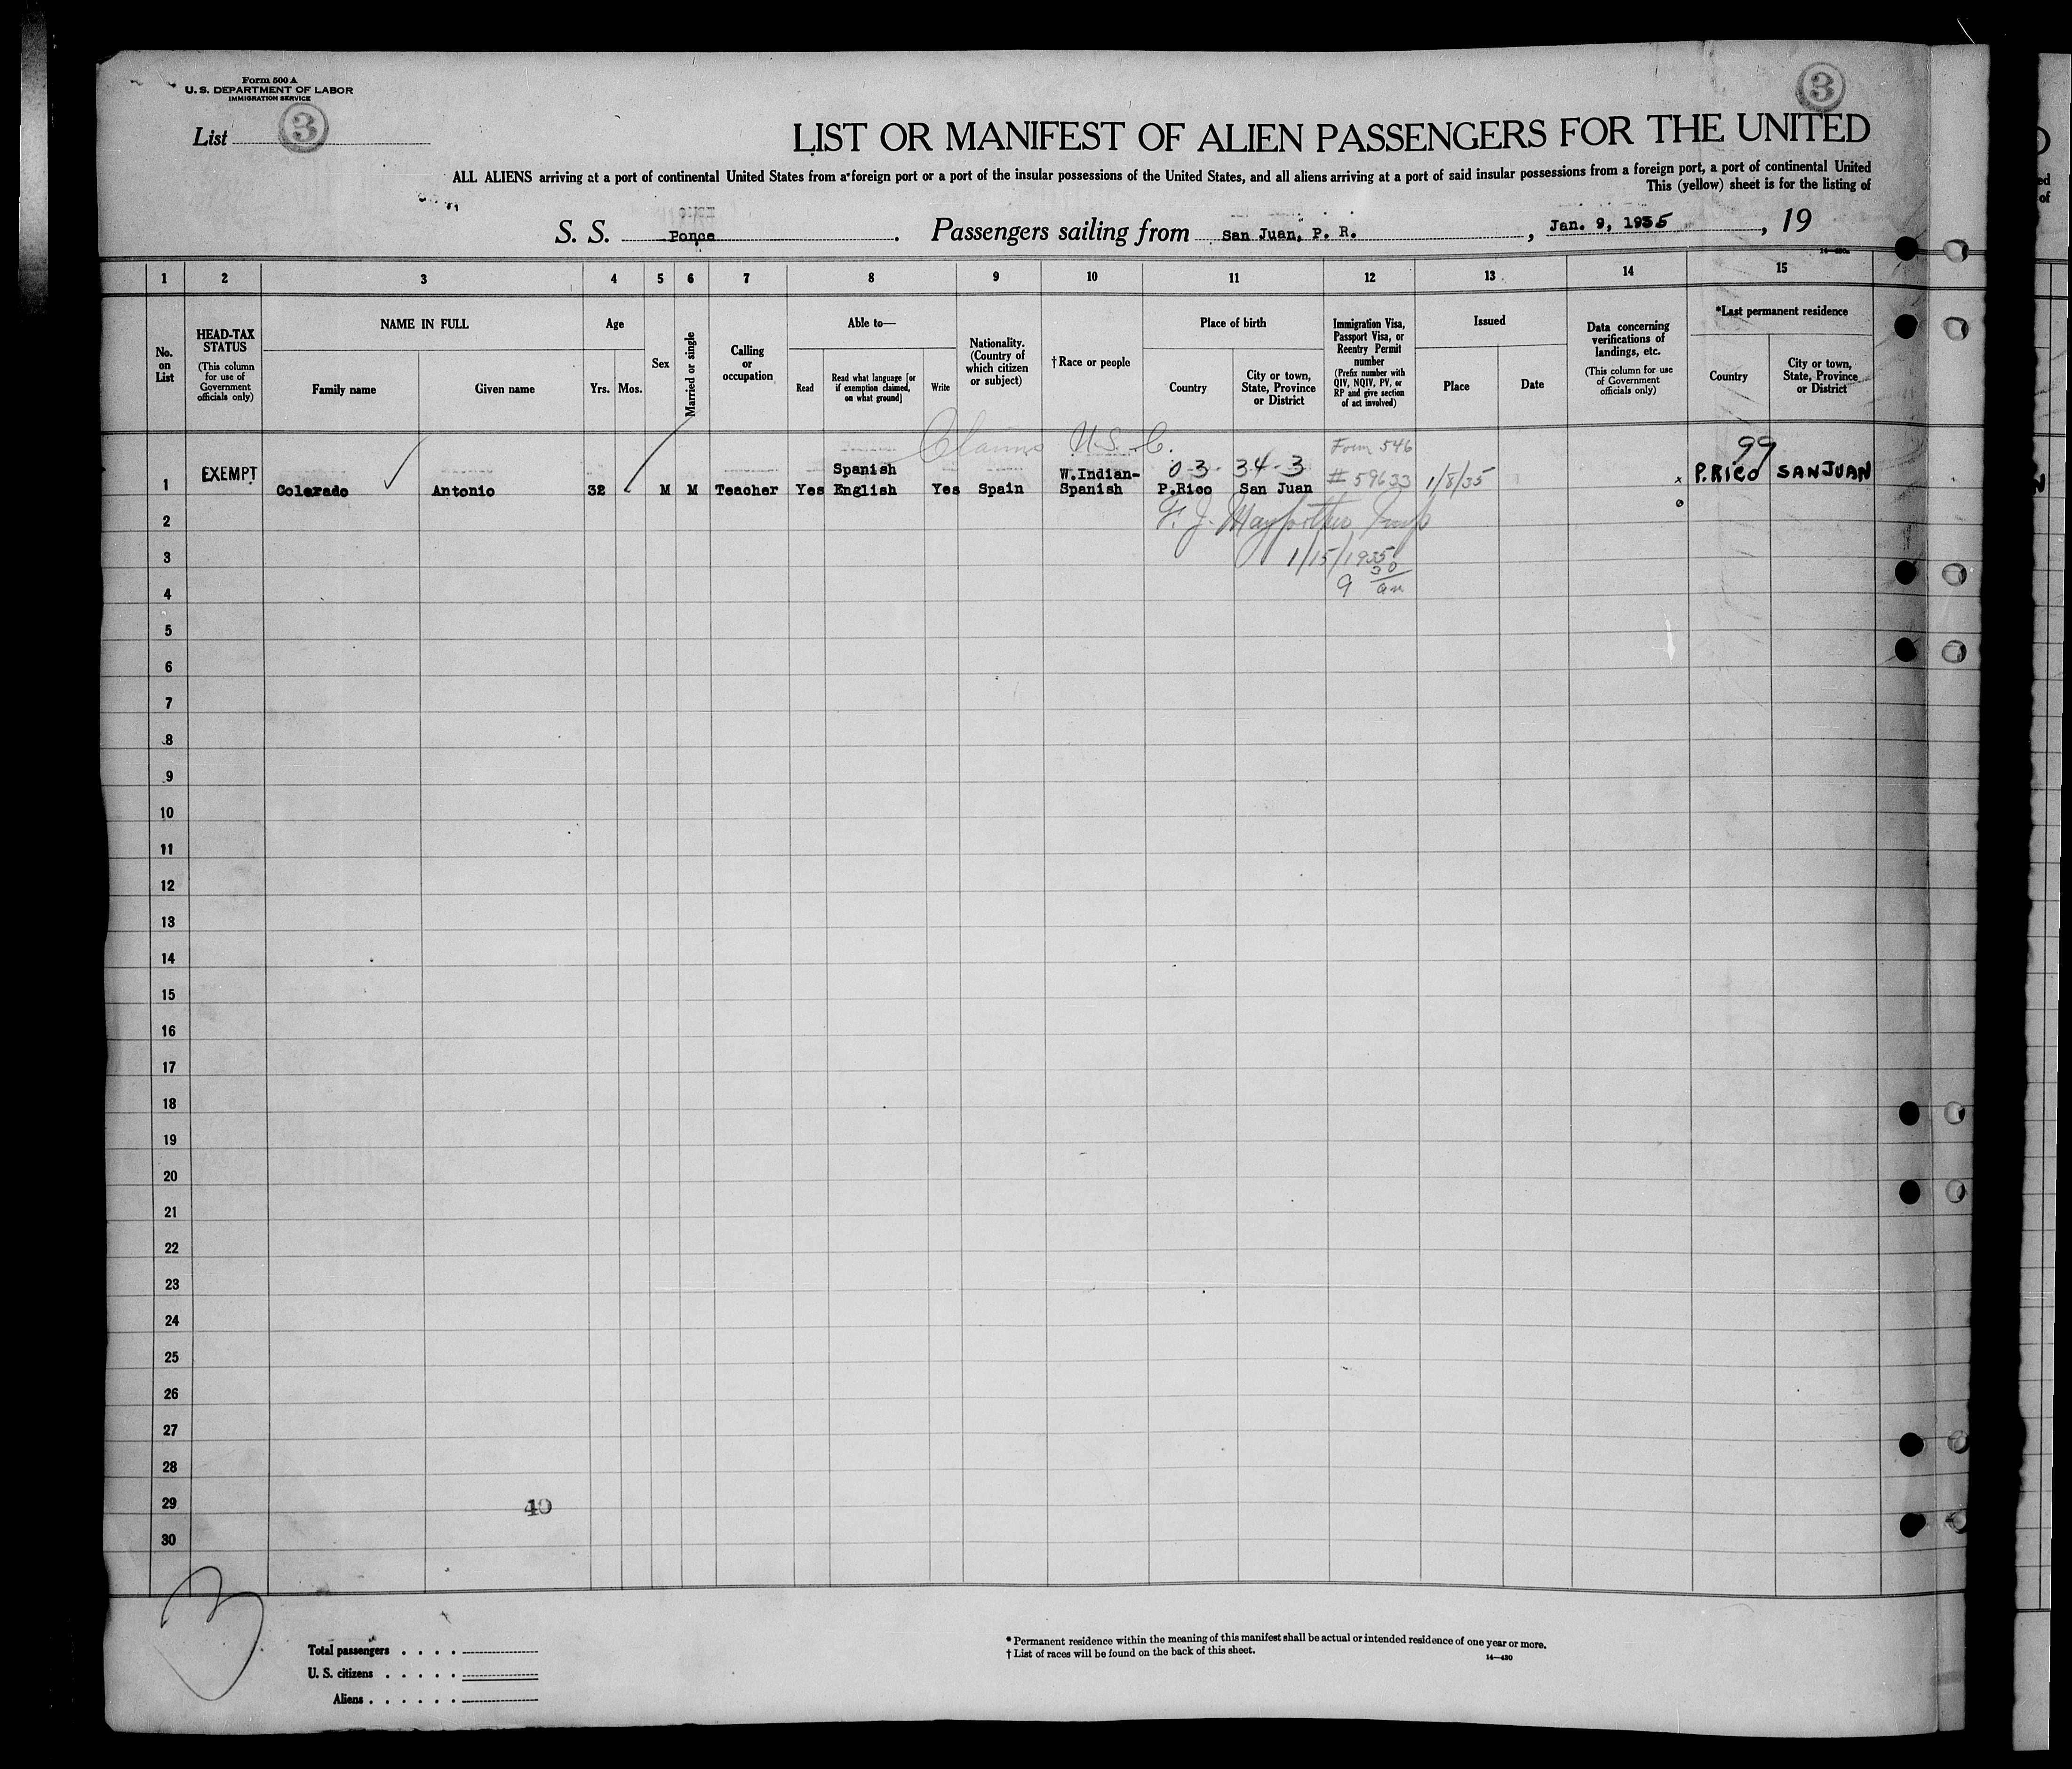 Form 500 A
U. S. DEPARTMENT OF LABOR
IMMIGRATION SERVICE
List 3
3
LIST OR MANIFEST OF ALIEN PASSENGERS FOR THE UNITED
ALL ALIENS arriving at a port of continental United States from a foreign port or a port of the insular possessions of the United States, and all aliens arriving at a port of said insular possessions from a foreign port, a port of continental United
This (yellow) sheet is for the listing of
S. S. Ponce. Passengers sailing from San Juan, P. R., Jan. 9, 1935, 19
1 2 3 4 5 6 7 8 9 10 11 12 13 14 15
No. on List
HEAD-TAX STATUS
(This column for use of Government officials only)
NAME IN FULL
Family name
Given name
Age
Yrs. Mos.
Sex
Married or single
Calling or occupation
Able to—
Read
Read what language [or if exemption claimed, on what ground]
Write
Nationality. (Country of which citizen or subject)
†Race or people
Place of birth
Country
City or town, State, Province or District
Immigration Visa, Passport Visa, or Reentry Permit number
(Prefix number with QIV, NQIV, PV, or RP and give section of act involved)
Issued
Place
Date
Data concerning verifications of landings, etc.
(This column for use of Government officials only)
*Last permanent residence
Country
City or town, State, Province or District
Claims U.S.C.
Form 546
99
EXEMPT
Spanish
W.Indian-
0 3 34 3
# 59633
1/8/35
P.RICO SAN JUAN
1 Colorado Antonio 32 M M Teacher Yes English Yes Spain Spanish P.Rico San Juan
x
2
3
1/15/1935
4
9 30 am
5
6
7
8
9
10
11
12
13
14
15
16
17
18
19
20
21
22
23
24
25
26
27
28
29
40
30
3
Total passengers
U. S. citizens
Aliens
* Permanent residence within the meaning of this manifest shall be actual or intended residence of one year or more.
† List of races will be found on the back of this sheet.
14—430